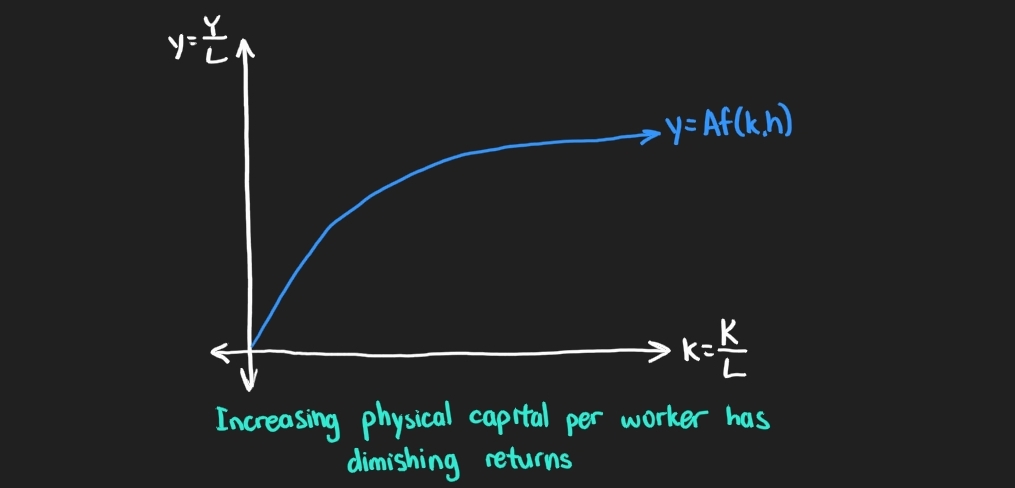 y=Y/L
y=Af(k,h)
k=K/L
Increasing physical capital per worker has
dimishing returns